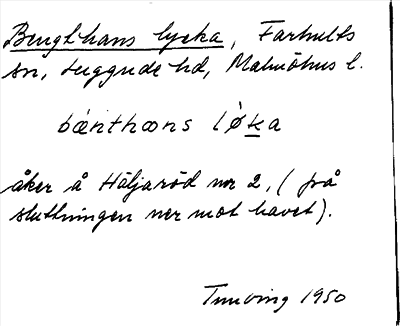 Bengthans lycka, Farhults
sn, Luggude hd, Malmöhus l.
bǽnthans lǿka
åker å Häljaröd nr 2, (på
sluttningen ner mot havet).
Tuneving 1950